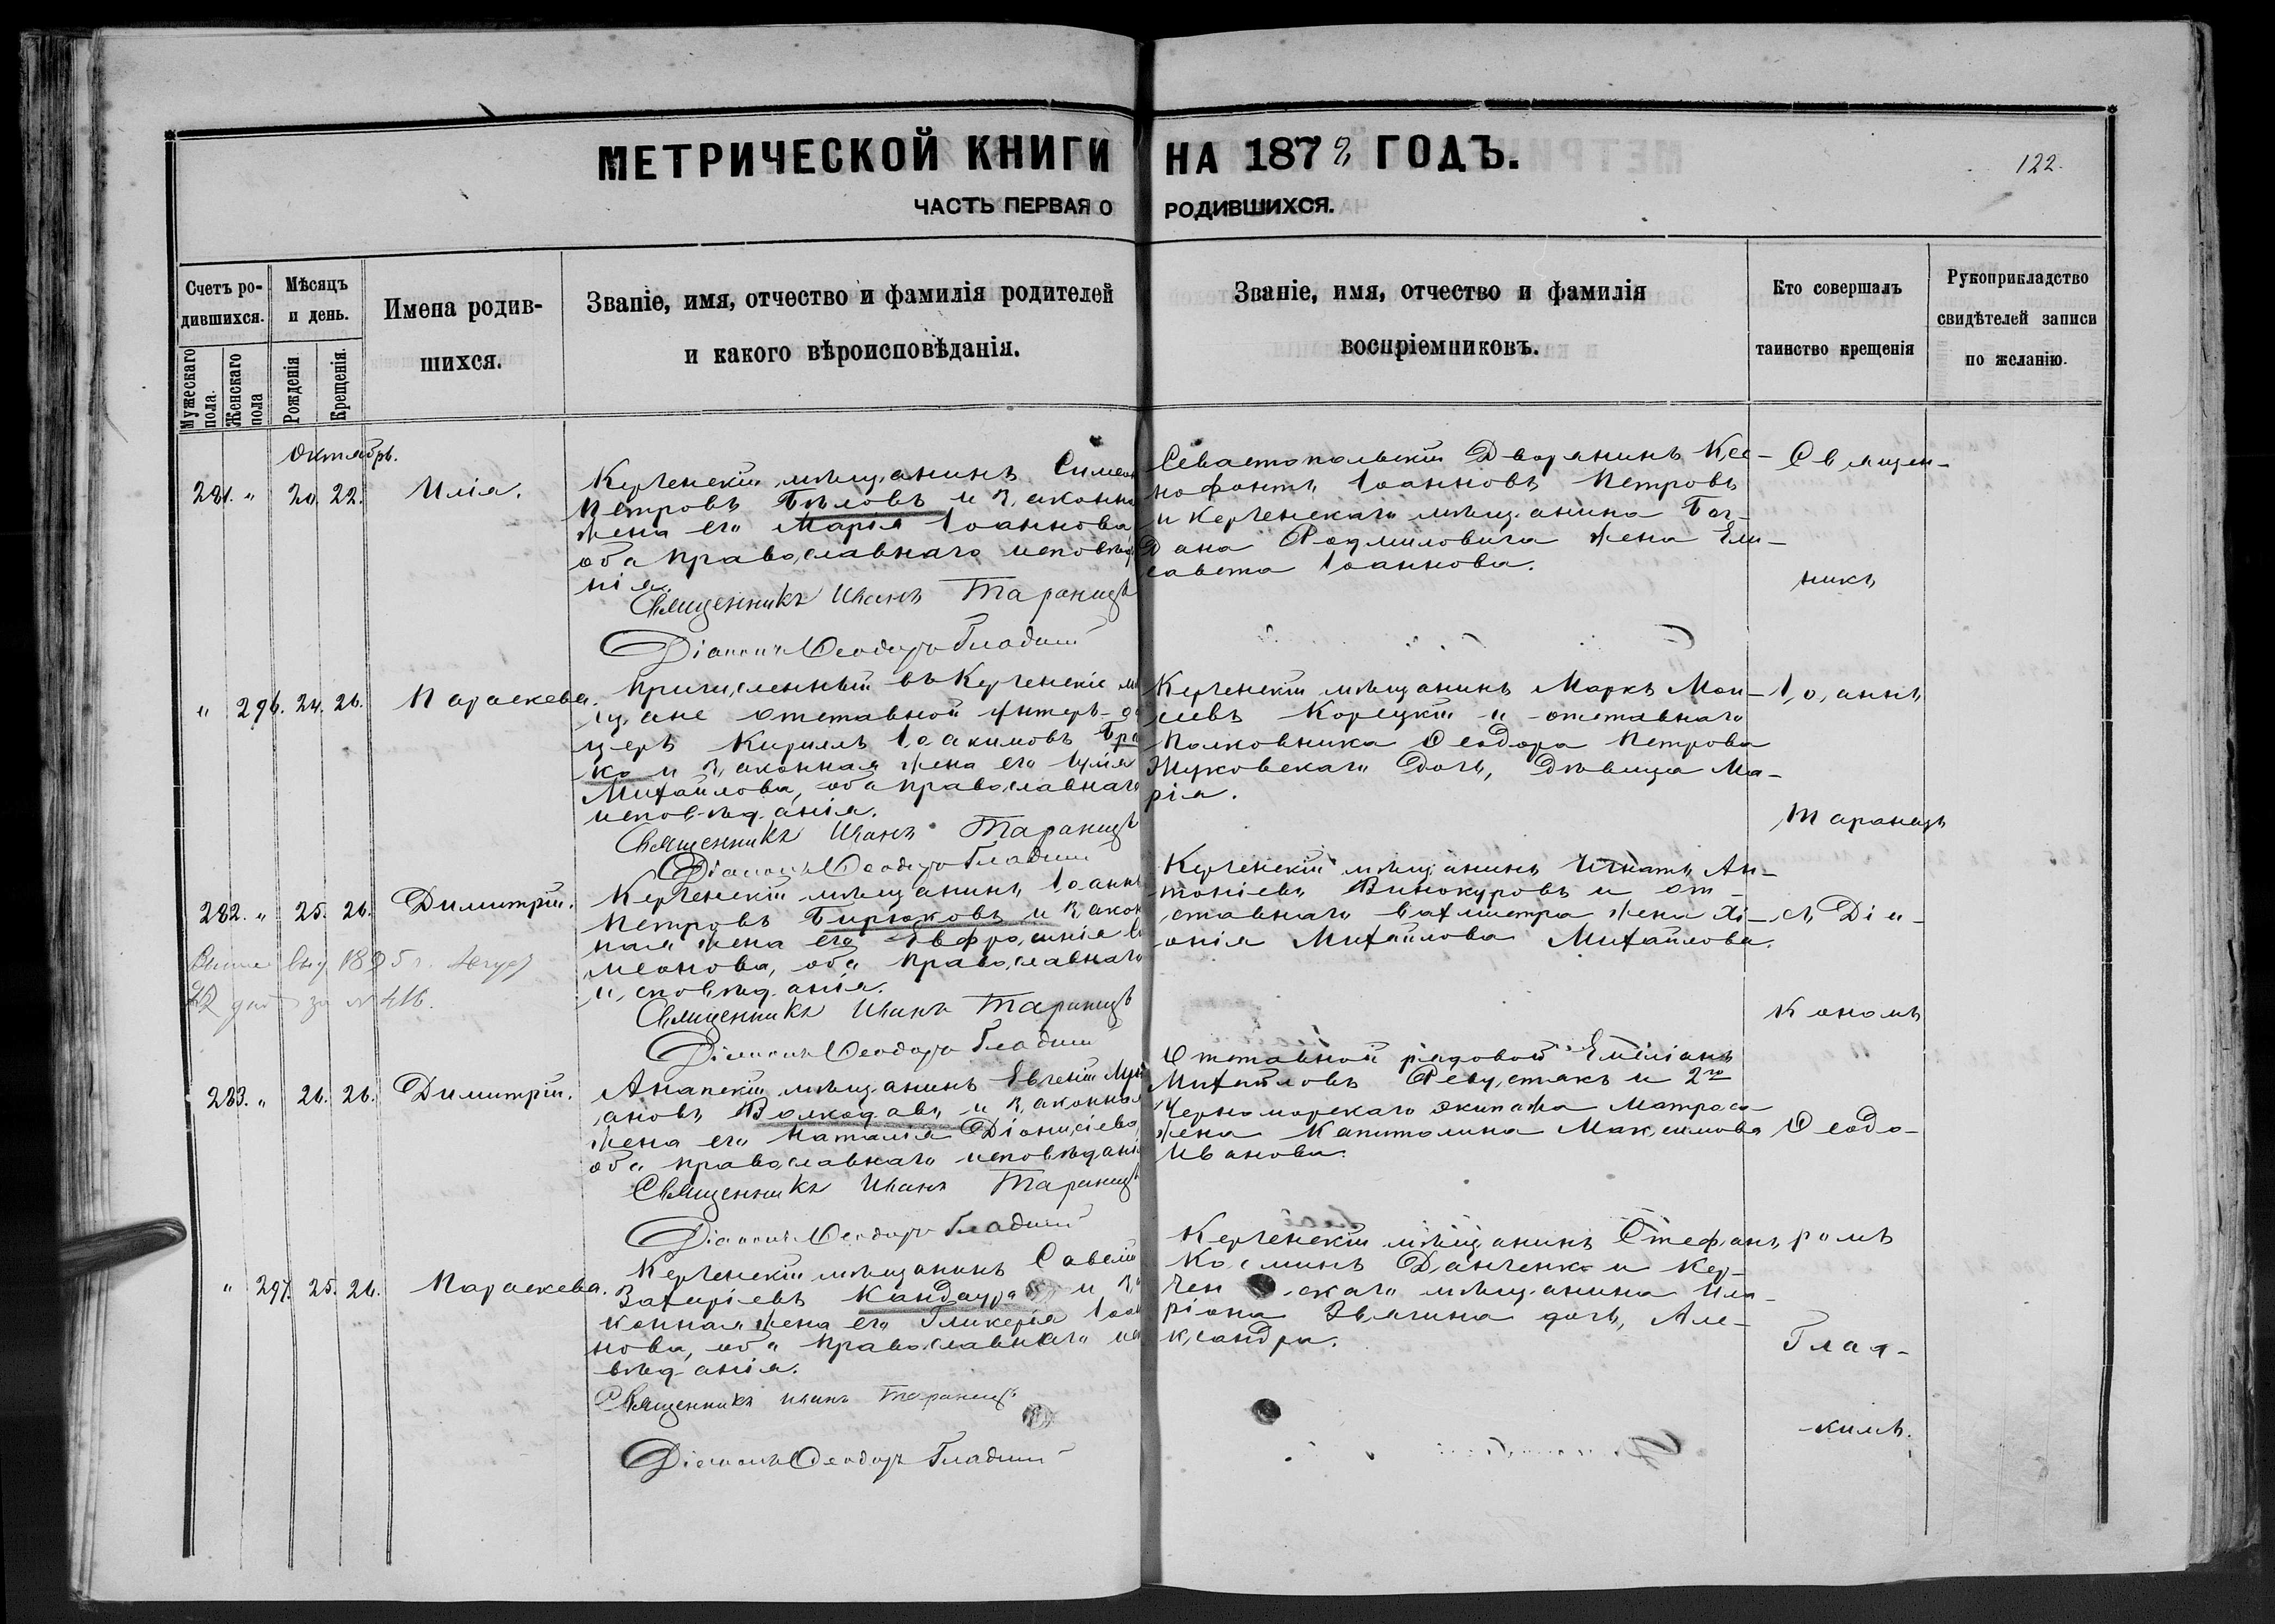 МЕТРИЧЕСКОЙ КНИГИ НА 1872 ГОДЪ.
122.
ЧАСТЬ ПЕРВАЯ О РОДИВШИХСЯ.
Счетъ ро-
дившихся.
Мужескаго пола.
Женскаго пола
Мѣсяцъ
и день.
Рожденія
Крещенія.
Имена родив-
шихся.
Званіе, имя, отчество и фамилія родителей
и какого вѣроисповѣданія.
Званіе, имя, отчество и фамилія
воспріемниковъ.
Кто совершалъ
таинство крещенія
Рукоприкладство
свидѣтелей записи
по желанію.
Октябрь.
281. " 20. 22. Илія.
Керченскій мѣщанинъ Симеон
Петровъ Бѣловъ и законна
жена его Марія Іоаннова
оба православнаго исповѣд
нія.
Священникъ Иванъ Таранецъ
Діаконъ Ѳеодоръ Гладкій
Севастопольскій Дворянинъ Ксе-
нофонтъ Іоанновъ Петровъ
и Керченскаго мѣщанина Бог-
дана Радмиловича жена Ели-
савета Іоаннова.
" 296. 24. 26. Параскева.
Причисленный въ Керченскіе мѣ
щане отставной унтеръ-оф
церъ Кириллъ Іоакимовъ
ко и законная жена его
Михайлова, оба православнаго
исповѣданія.
Священникъ Иванъ Таранецъ
Діаконъ Ѳеодоръ Гладкій
Керченскій мѣщанинъ Маркъ Мои-
сеевъ Корецкій и отставнаго
Полковника Ѳеодора Петрова
Жуковскаго дочь, дѣвица Ма-
рія.
282. " 25. 26. Димитрій.
Керченскій мѣщанинъ Іоаннъ
Петровъ Бирюковъ и закон
ная жена его Евфросинія Си
меонова, оба православнаго
исповѣданія.
Священникъ Иванъ Таранецъ
Діаконъ Ѳеодоръ Гладкій
Керченскій мѣщанинъ Игнатъ Ан-
тоніевъ Винокуровъ и от-
ставнаго вахмистра жена Хі-
онія Михайлова Михайлова.
1895 г.
22 дня за № 416.
283. " 26. 26. Димитрій.
Анапскій мѣщанинъ Евгеній Луки
ановъ Волкодавъ и законная
жена его Наталія Діонисіева,
оба православнаго исповѣдані
Священникъ Иванъ Таранецъ
Діаконъ Ѳеодоръ Гладкій
Отставной рядовой Емеліанъ
Михайловъ и 2го
Черноморскаго экипажа матроса
жена Капитолина Максимова
Иванова.
" 297. 25. 26. Параскева.
Керченскій мѣщанинъ Савелій
Захаріевъ Кандаура и за
конная жена его Гликерія Іоан
нова, оба православнаго испо
вѣданія.
Священникъ Иванъ Таранецъ
Діаконъ Ѳеодоръ Гладкій
Керченскій мѣщанинъ Стефанъ
Косминъ Данченко и Кер-
ченскаго мѣщанина Ила-
ріона Звягина дочь, Але-
ксандра.
Священ-
никъ
Іоаннъ
Таранецъ
съ Діа-
кономъ
Ѳеодо-
ромъ
Глад-
кимъ.